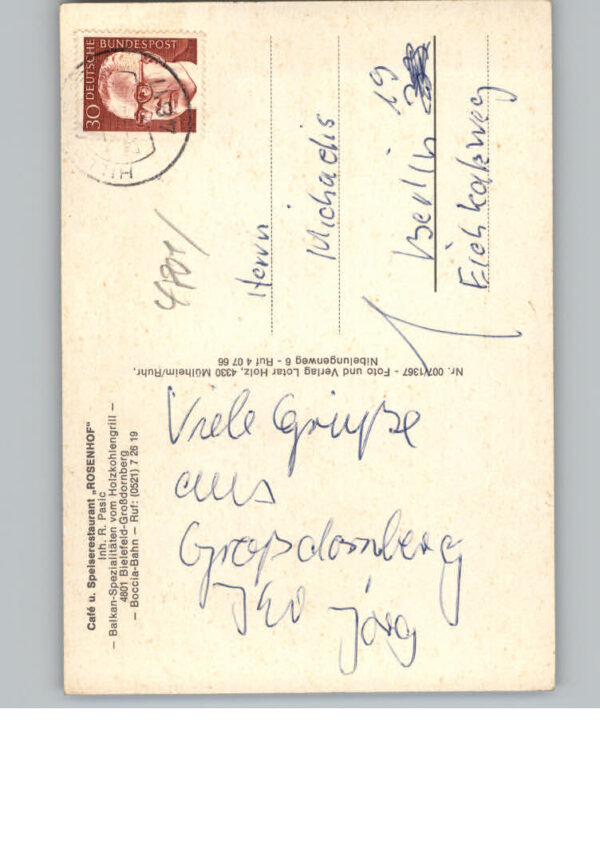 Café u. Speiserestaurant „ROSENHOF"
Inh. R. Pasić
– Balkan-Spezialitäten vom Holzkohlengrill –
4801 Bielefeld-Großdornberg
– Boccia-Bahn – Ruf: (0521) 7 26 19
Viele Grüße
aus
Großdornberg
Jörg
Nr. 007/1367 - Foto und Verlag Lotar Holz, 4330 Mülheim/Ruhr,
Nibelungenweg 6 - Ruf 4 07 66
30 DEUTSCHE BUNDESPOST
4801
Herrn
Michaelis
Berlin 19